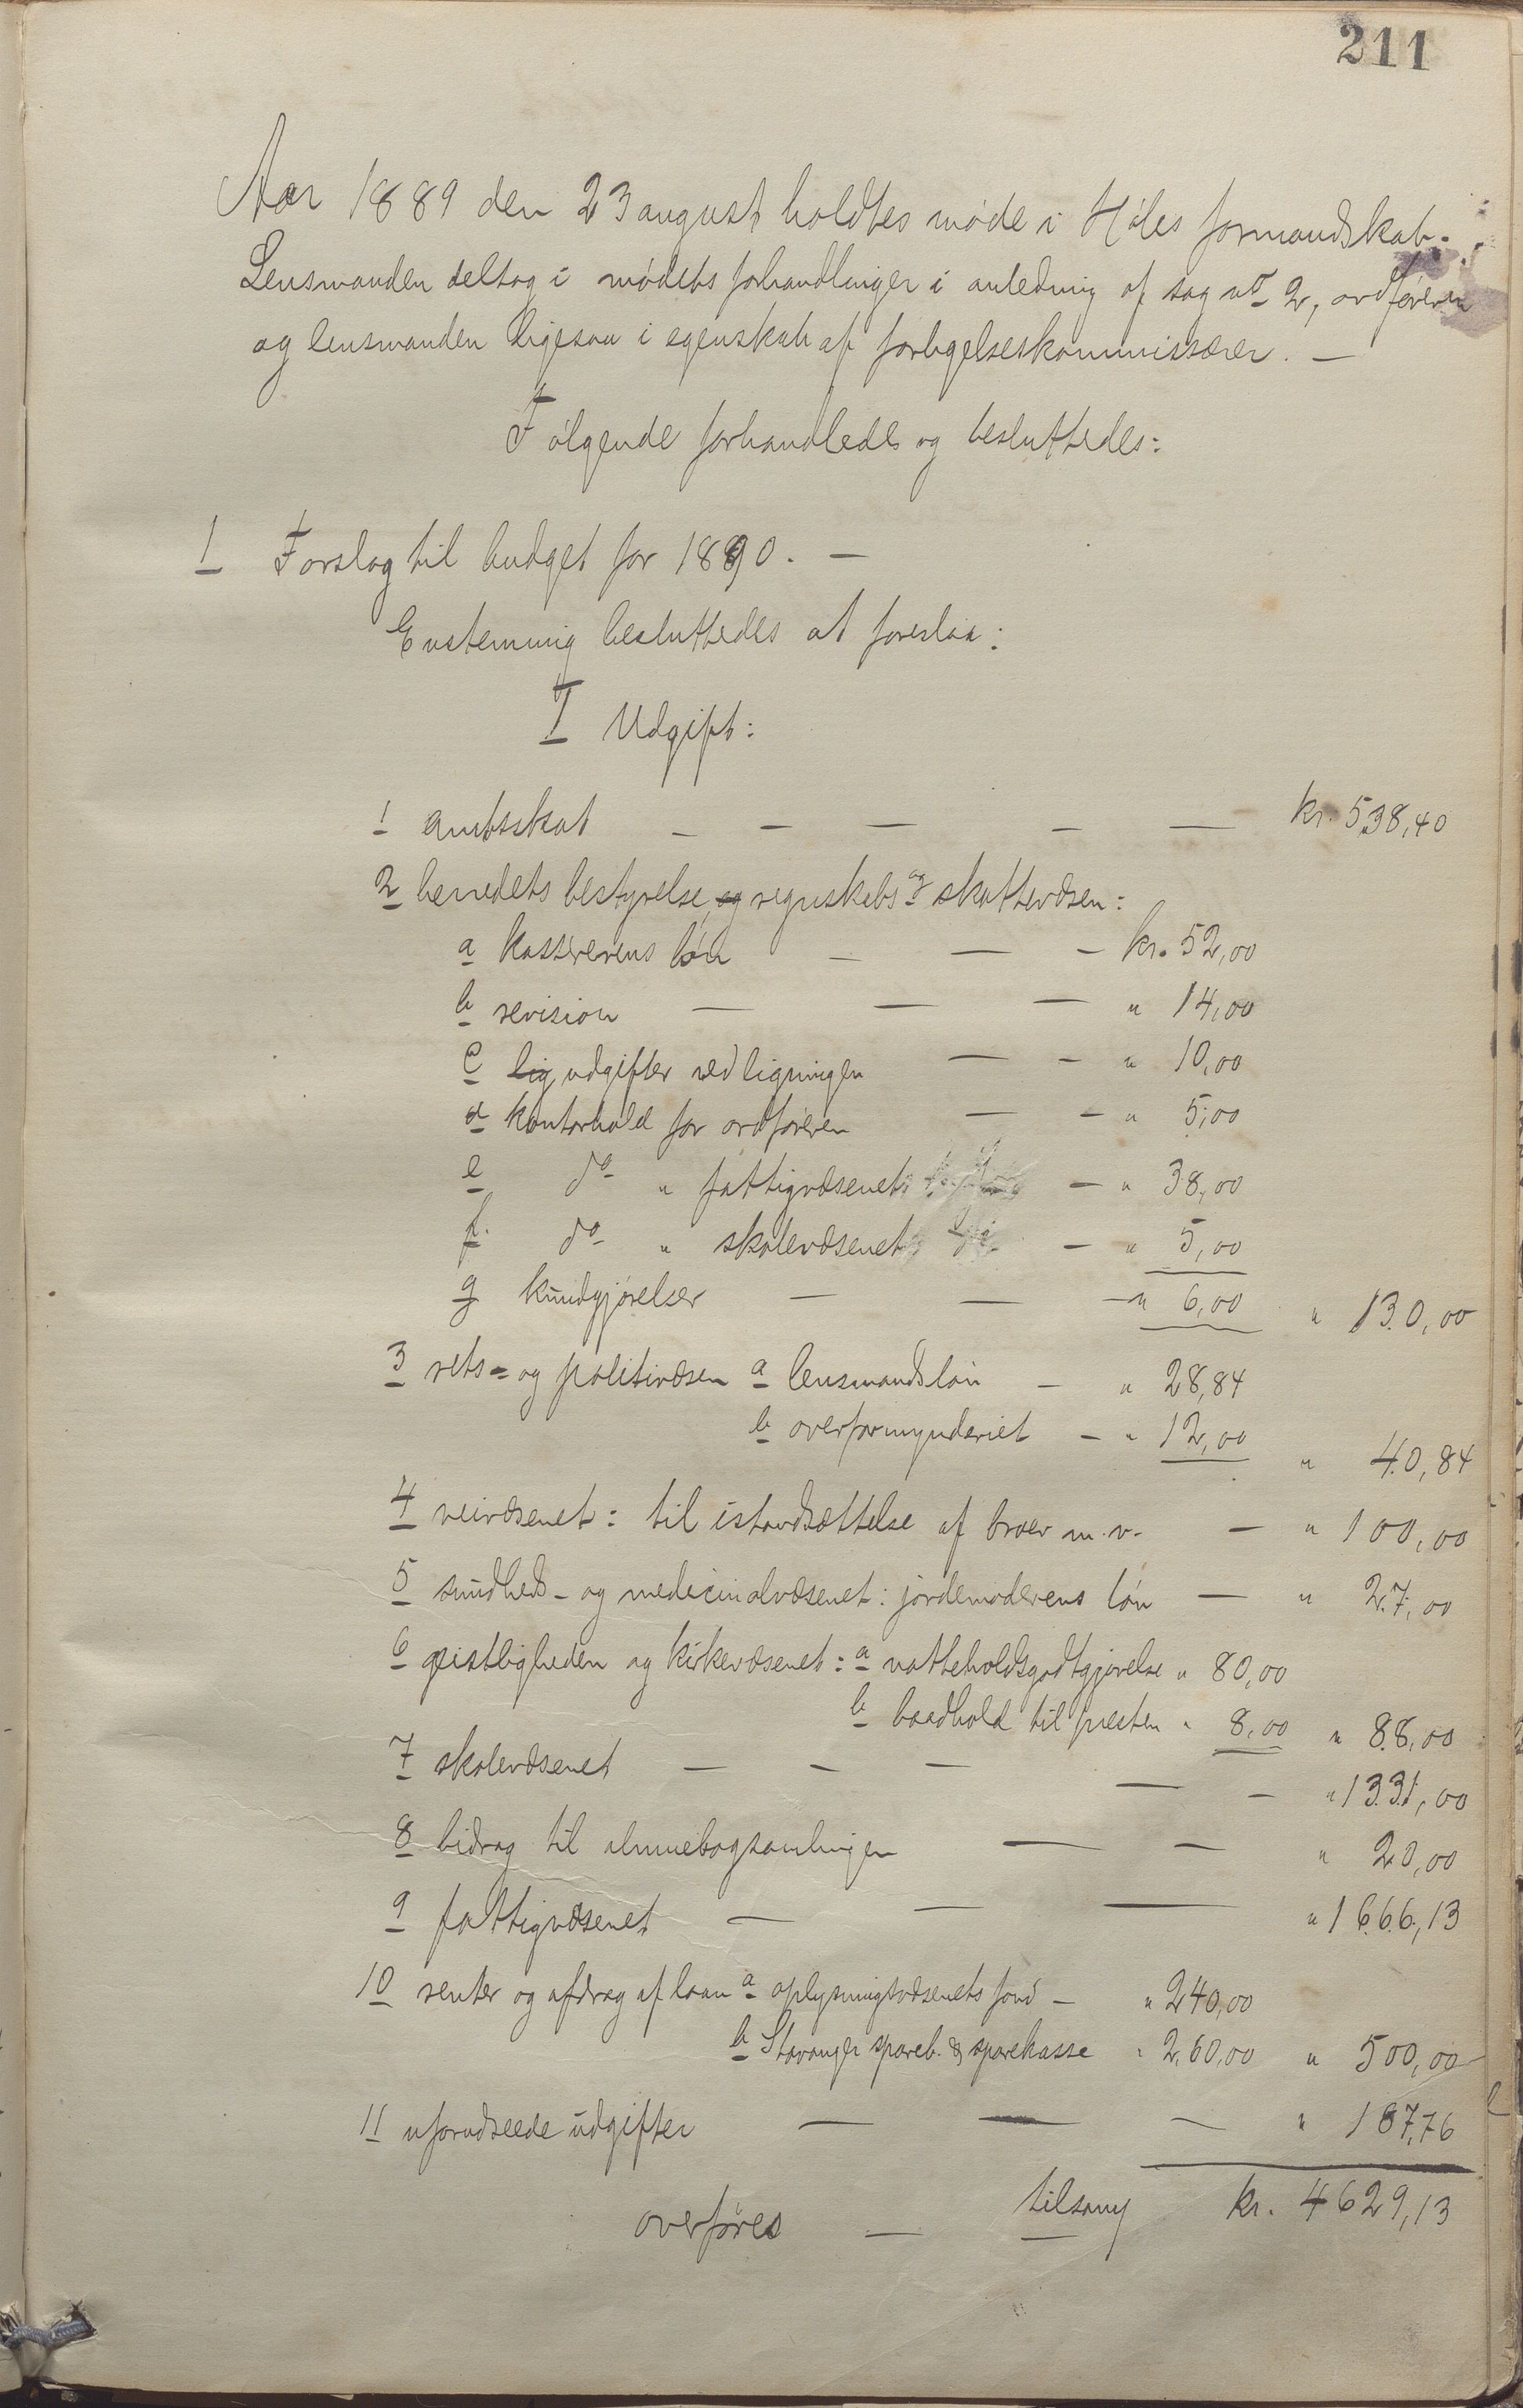 211
Aar 1889 den 23 august holdtes møde i Høles formandskab.
Lensmanden deltog i mødets forhandlinger i anledning af sag no 2, ordføreren
og lensmanden ligesaa i egenskab af forligelseskommissærer. —
Følgende forhandledes og besluttedes:
1 Forslag til budget for 1890. —
Enstemmig besluttedes at foreslaa:
I Udgift:
1 amtsskat — — — — — kr. 538,40
2 herredets bestyrelse, og regnskabs- og skattevæsen:
a kassererens løn — — — kr. 52,00
b revision — — — " 14,00
c lig udgifter ved ligningen — — " 10,00
d kontorhold for ordføreren — — " 5,00
e do " fattigvæsenet — " 38,00
f. do " skolevæsenet — " 5,00
g kundgjørelser — — — " 6,00 " 130,00
3 rets- og politivæsen a lensmandsløn — " 28,84
b overformynderiet — " 12,00 " 40,84
4 veivæsenet: til istandsættelse af broer m. v. — " 100,00
5 sundheds- og medicinalvæsenet: jordemoderens løn — " 27,00
6 geistligheden og kirkevæsenet: a natteholdsgodtgjørelse " 80,00
b baadhold til presten " 8,00 " 88,00
7 skolevæsenet — — — — — " 1331,00
8 bidrag til almuebogsamlingen — — " 20,00
9 fattigvæsenet — — — " 1666,13
10 renter og afdrag af laan a oplysningsvæsenets fond — " 240,00
b Stavanger spareb. & sparekasse " 260,00 " 500,00
11 uforudseede udgifter — — — " 187,76
tilsam kr. 4629,13
overføres — —